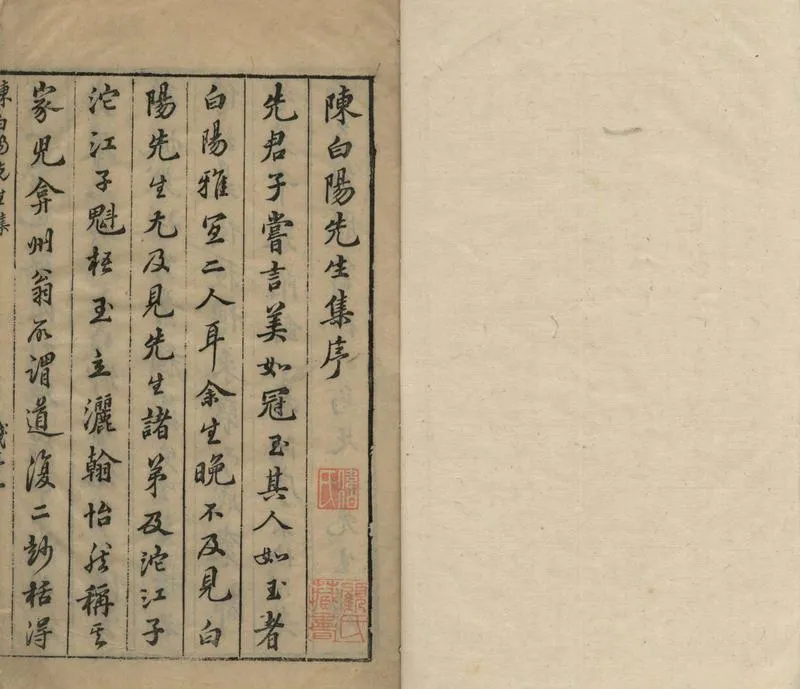 陳白陽先生集序
先君子嘗言美如冠玉其人如玉者
白陽雅宜二人耳余生晚不及見白
陽先生尤及見先生諸弟及沱江子
沱江子魁梧玉立灑翰怡然稱其
家兒弇州翁所謂道復二妙栝得
陳白陽先生集
顧氏藏書